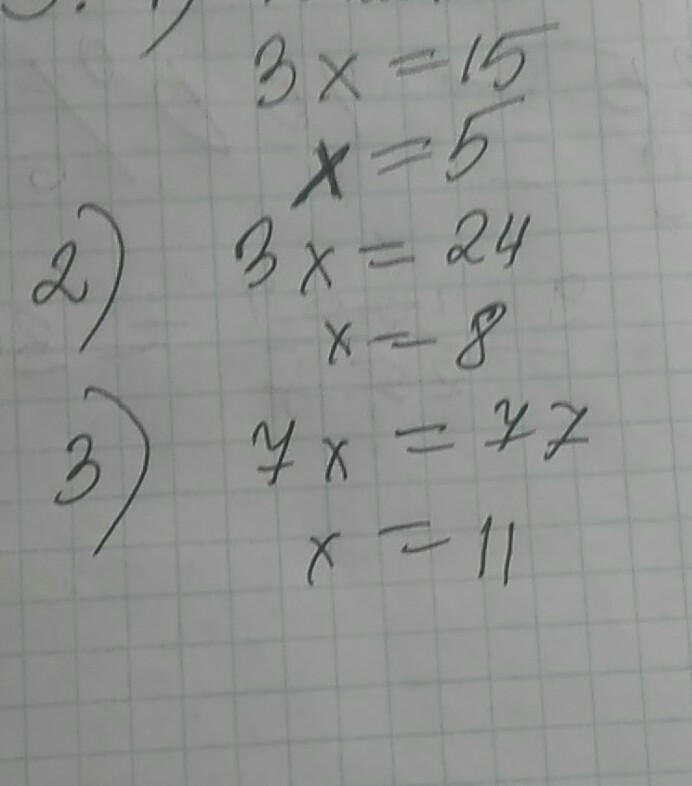 3x = 15
x = 5
2) 3x = 24
x = 8
3) 7x = 77
x = 11